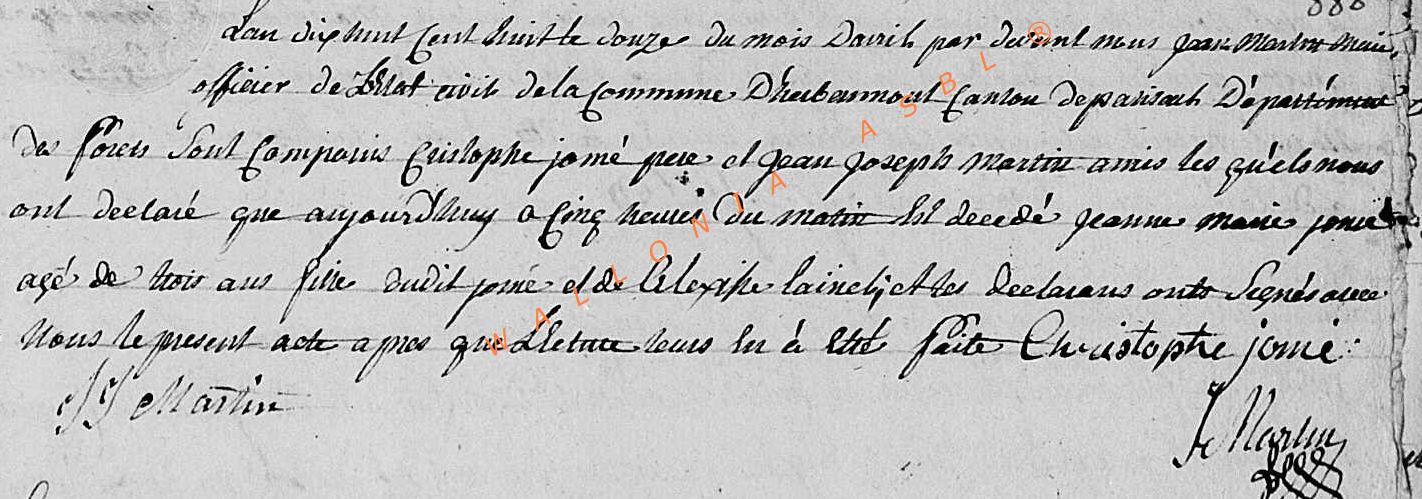 Lan dixhuit Cent huit le douze du mois Davril par devant nous jean Martin Maire
officier de L'Etat civil de la Commune D'herbeumont Canton de paliseul Département
des forets Sont Comparus Cristophe jomé pere et jean joseph Martin amis les quels nous
ont declaré que aujourD'huy a Cinq heures Du matin Est decedé jeanne marie jomé
agé de trois ans fille dudit jomé et de et les declarans ont Signés avec
Nous le present acte apres que Lletture leurs en à Etté faite Christophe jomé
JJ Martin
J Martin
WALLONIA ASBL ®